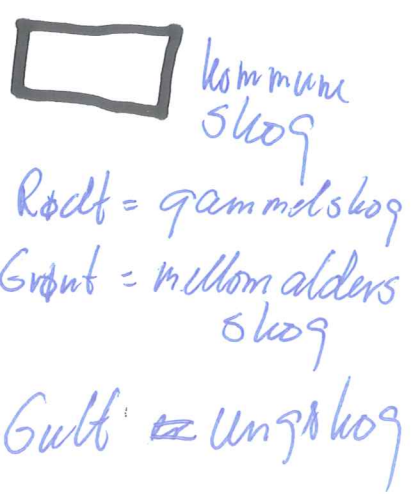 kommune
skog
Rødt = gammelskog
Grønt = mellomalders
skog
Gult = ungskog